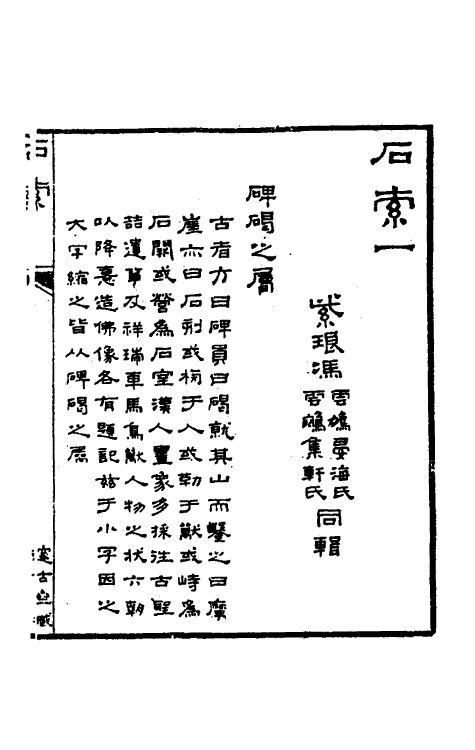 石索一
紫琅馮
雲鵬晏海氏
雲鵷集軒氏
同輯
碑碣之屬
古者方曰碑員曰碣就其山而鑿之曰摩
崖亦曰石刻或栁于人或勒于獸或峙為
石闕或營為石室漢人畫家多採往古聖
詰遺事及祥瑞車馬鳥獸人物之狀六朝
以降裒造佛像各有題記始于小字因之
大字縮之皆从碑碣之屬
石索
邃古齋藏